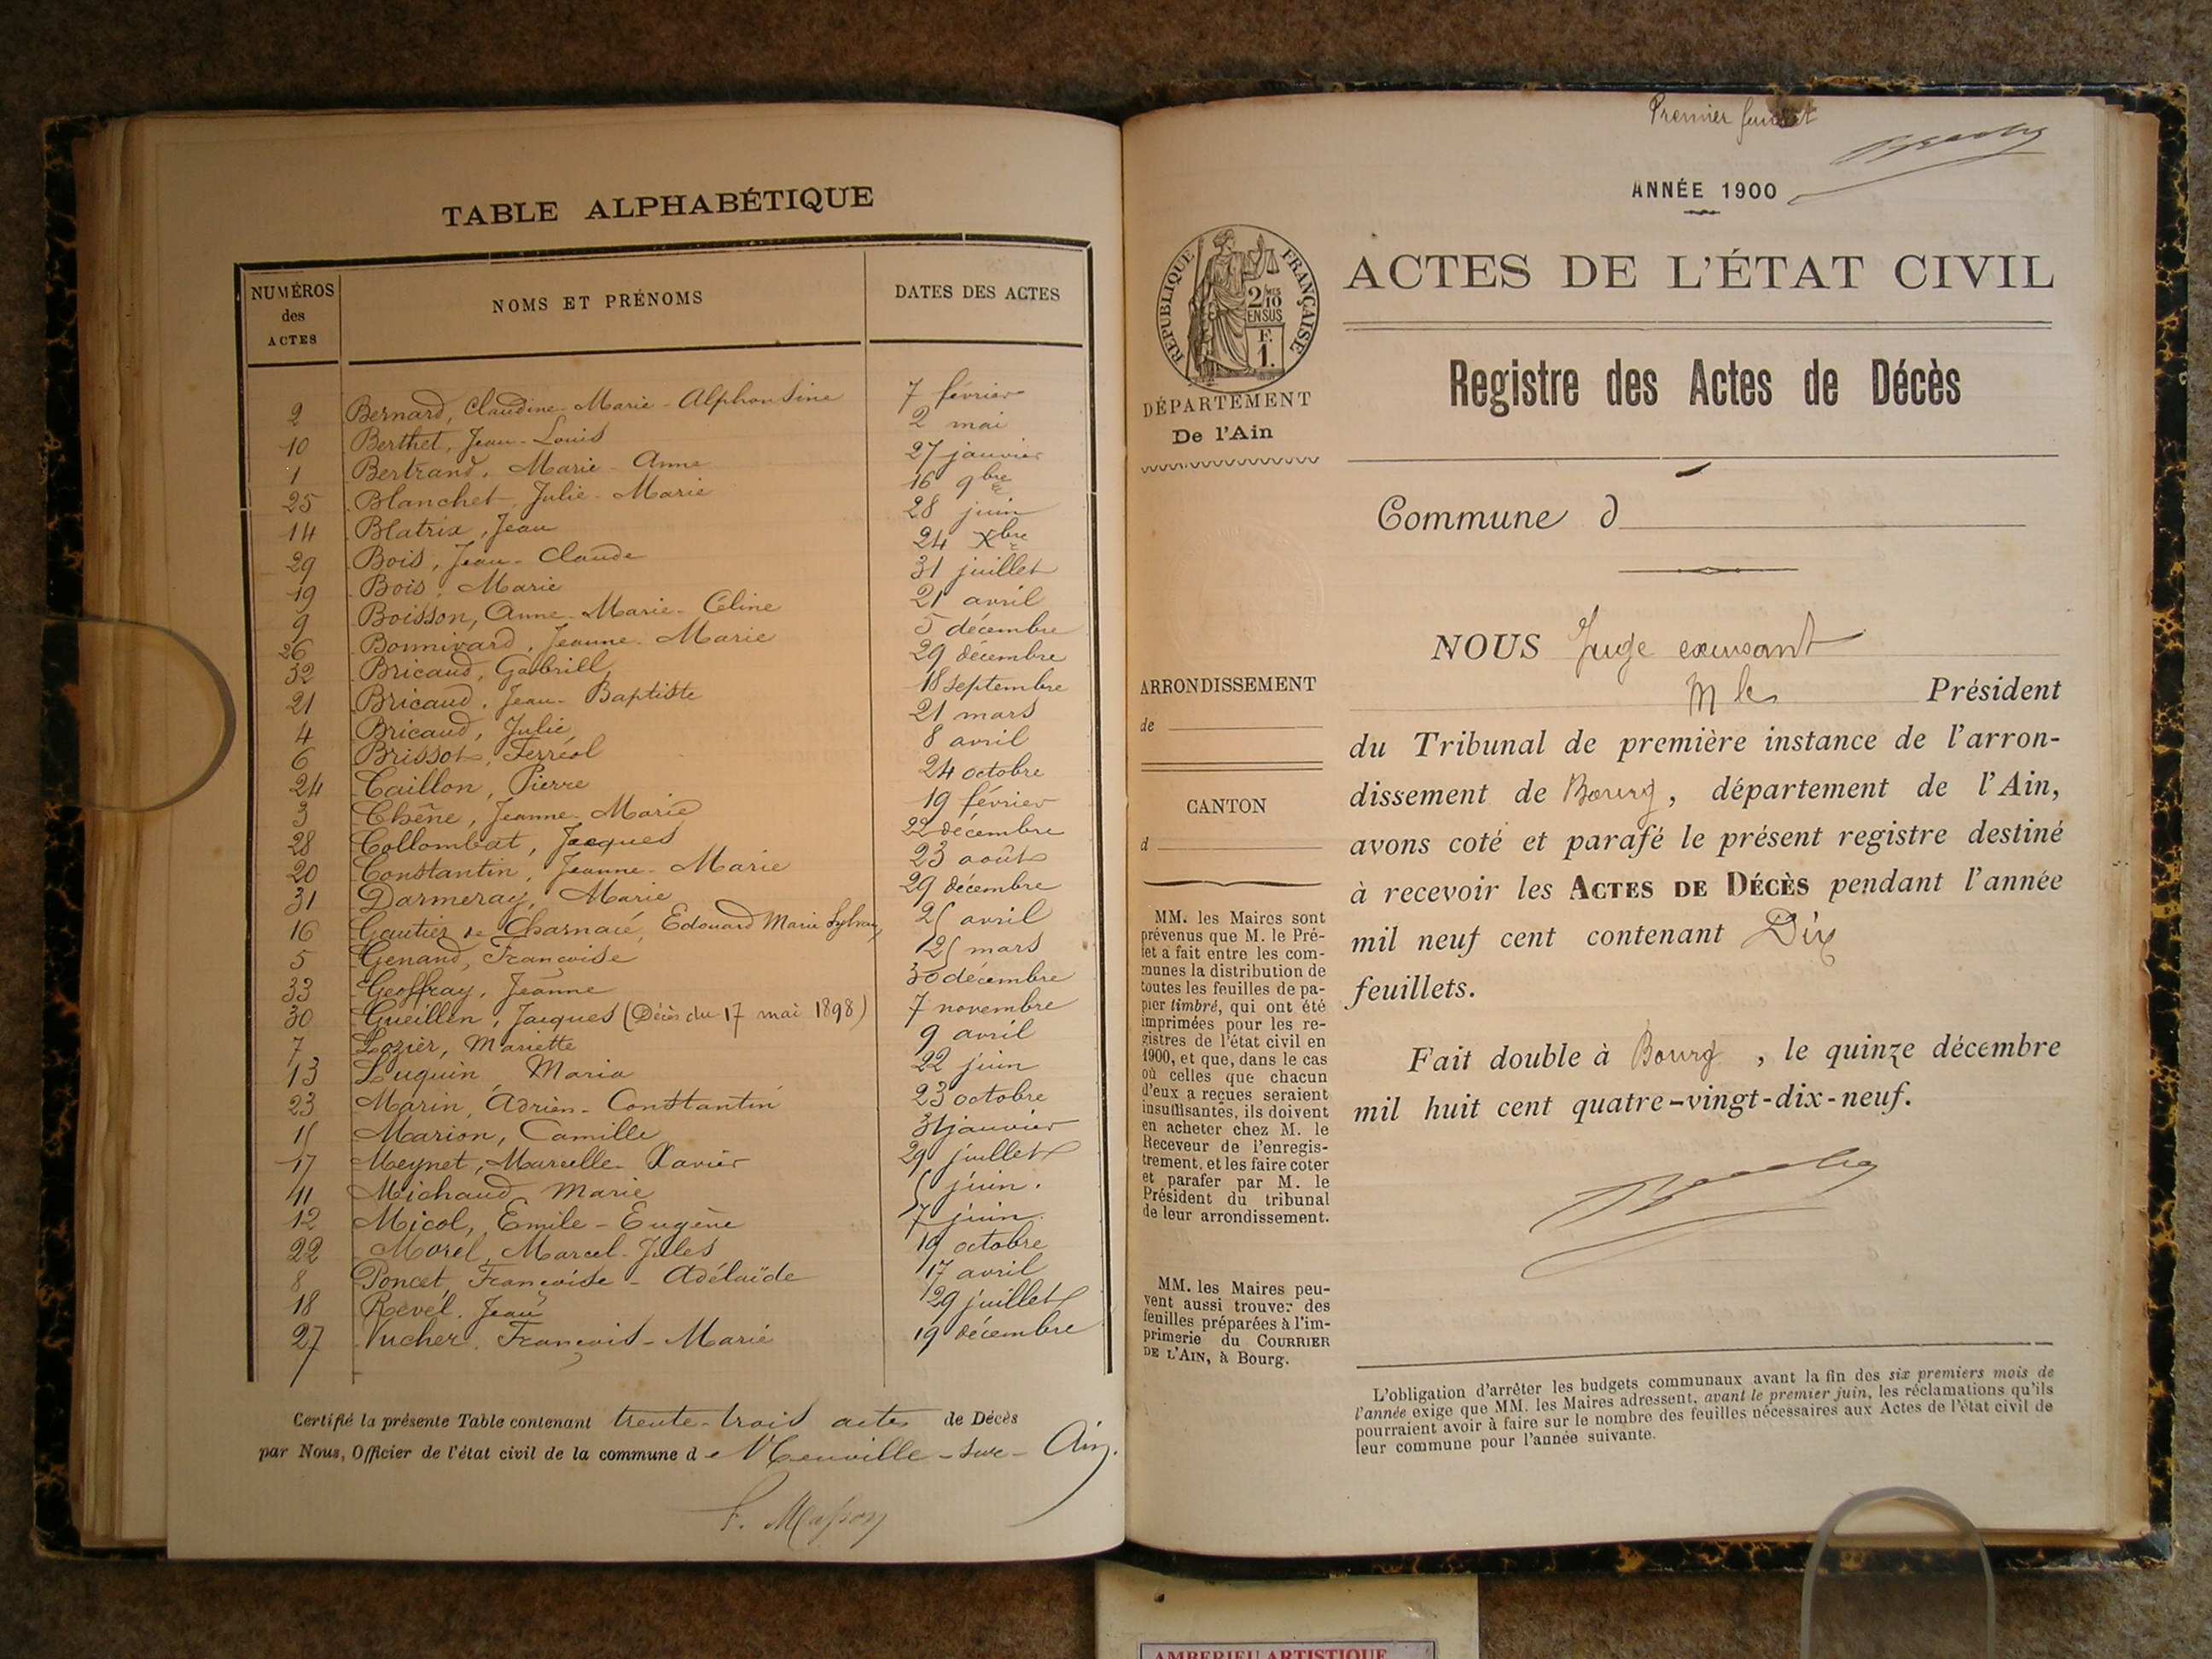 TABLE ALPHABÉTIQUE
NUMÉROS des ACTES NOMS ET PRÉNOMS DATES DES ACTES
2 Bernard, Claudine-Marie-Alphonsine 7 février
10 Berthet, Jean-Louis 2 mai
1 Bertrand, Marie-Anne 27 janvier
25 Blanchet, Julie-Marie 16 9bre
14 Blatrix, Jean 28 juin
29 Bois, Jean-Claude 24 Xbre
19 Bois, Marie 31 juillet
9 Boisson, Anne-Marie-Céline 21 avril
26 Bonnivard, Jeanne-Marie 5 décembre
32 Bricaud, Gabrill 29 décembre
21 Bricaud, Jean-Baptiste 18 septembre
4 Bricaud, Julie 21 mars
6 Brissot, Ferréol 8 avril
24 Caillon, Pierre 24 octobre
3 Chêne, Jeanne-Marie 19 février
28 Collombat, Jacques 22 décembre
20 Constantin, Jeanne-Marie 23 août
31 Darmeray, Marie 29 décembre
16 Gautier de Charnacé, Edouard Marie 25 avril
5 Genand, Françoise 25 mars
33 Geoffray, Jeanne 30 décembre
30 Gueillen, Jacques (Décès du 17 mai 1898) 7 novembre
7 Lozier, Mariette 9 avril
13 Luquin Maria 22 juin
23 Marin, Adrien-Constantin 23 octobre
15 Marion, Camille 31 janvier
17 Meynet, Marcelle-Xavier 29 juillet
11 Michaud, Marie 5 juin.
12 Micol, Emile-Eugène 7 juin.
22 Morel, Marcel-Jules 19 octobre
8 Poncet, Françoise-Adélaïde 17 avril
18 Revel, Jean 29 juillet
27 Vucher, François-Marie 19 décembre
Certifié la présente Table contenant trente-trois actes de Décès
par Nous, Officier de l'état civil de la commune de Neuville-sur-Ain.
Premier feuillet
ANNÉE 1900
RÉPUBLIQUE FRANÇAISE
2/10 MES EN SUS
F. 1.
ACTES DE L'ÉTAT CIVIL
Registre des Actes de Décès
DÉPARTEMENT
De l'Ain
Commune d
NOUS Juge
Président
ARRONDISSEMENT
de
du Tribunal de première instance de l'arron-
dissement de Bourg, département de l'Ain,
CANTON
d
avons coté et parafé le présent registre destiné
à recevoir les ACTES DE DÉCÈS pendant l'année
mil neuf cent contenant Dix
feuillets.
Fait double à Bourg, le quinze décembre
mil huit cent quatre-vingt-dix-neuf.
MM. les Maires sont
prévenus que M. le Pré-
fet a fait entre les com-
munes la distribution de
toutes les feuilles de pa-
pier timbré, qui ont été
imprimées pour les re-
gistres de l'état civil en
1900, et que, dans le cas
où celles que chacun
d'eux a reçues seraient
insuffisantes, ils doivent
en acheter chez M. le
Receveur de l'enregis-
trement, et les faire coter
et parafer par M. le
Président du tribunal
de leur arrondissement.
MM. les Maires peu-
vent aussi trouver des
feuilles préparées à l'im-
primerie du COURRIER
DE L'AIN, à Bourg.
L'obligation d'arrêter les budgets communaux avant la fin des six premiers mois de
l'année exige que MM. les Maires adressent, avant le premier juin, les réclamations qu'ils
pourraient avoir à faire sur le nombre des feuilles nécessaires aux Actes de l'état civil de
leur commune pour l'année suivante.
AMBERIEU ARTISTIQUE